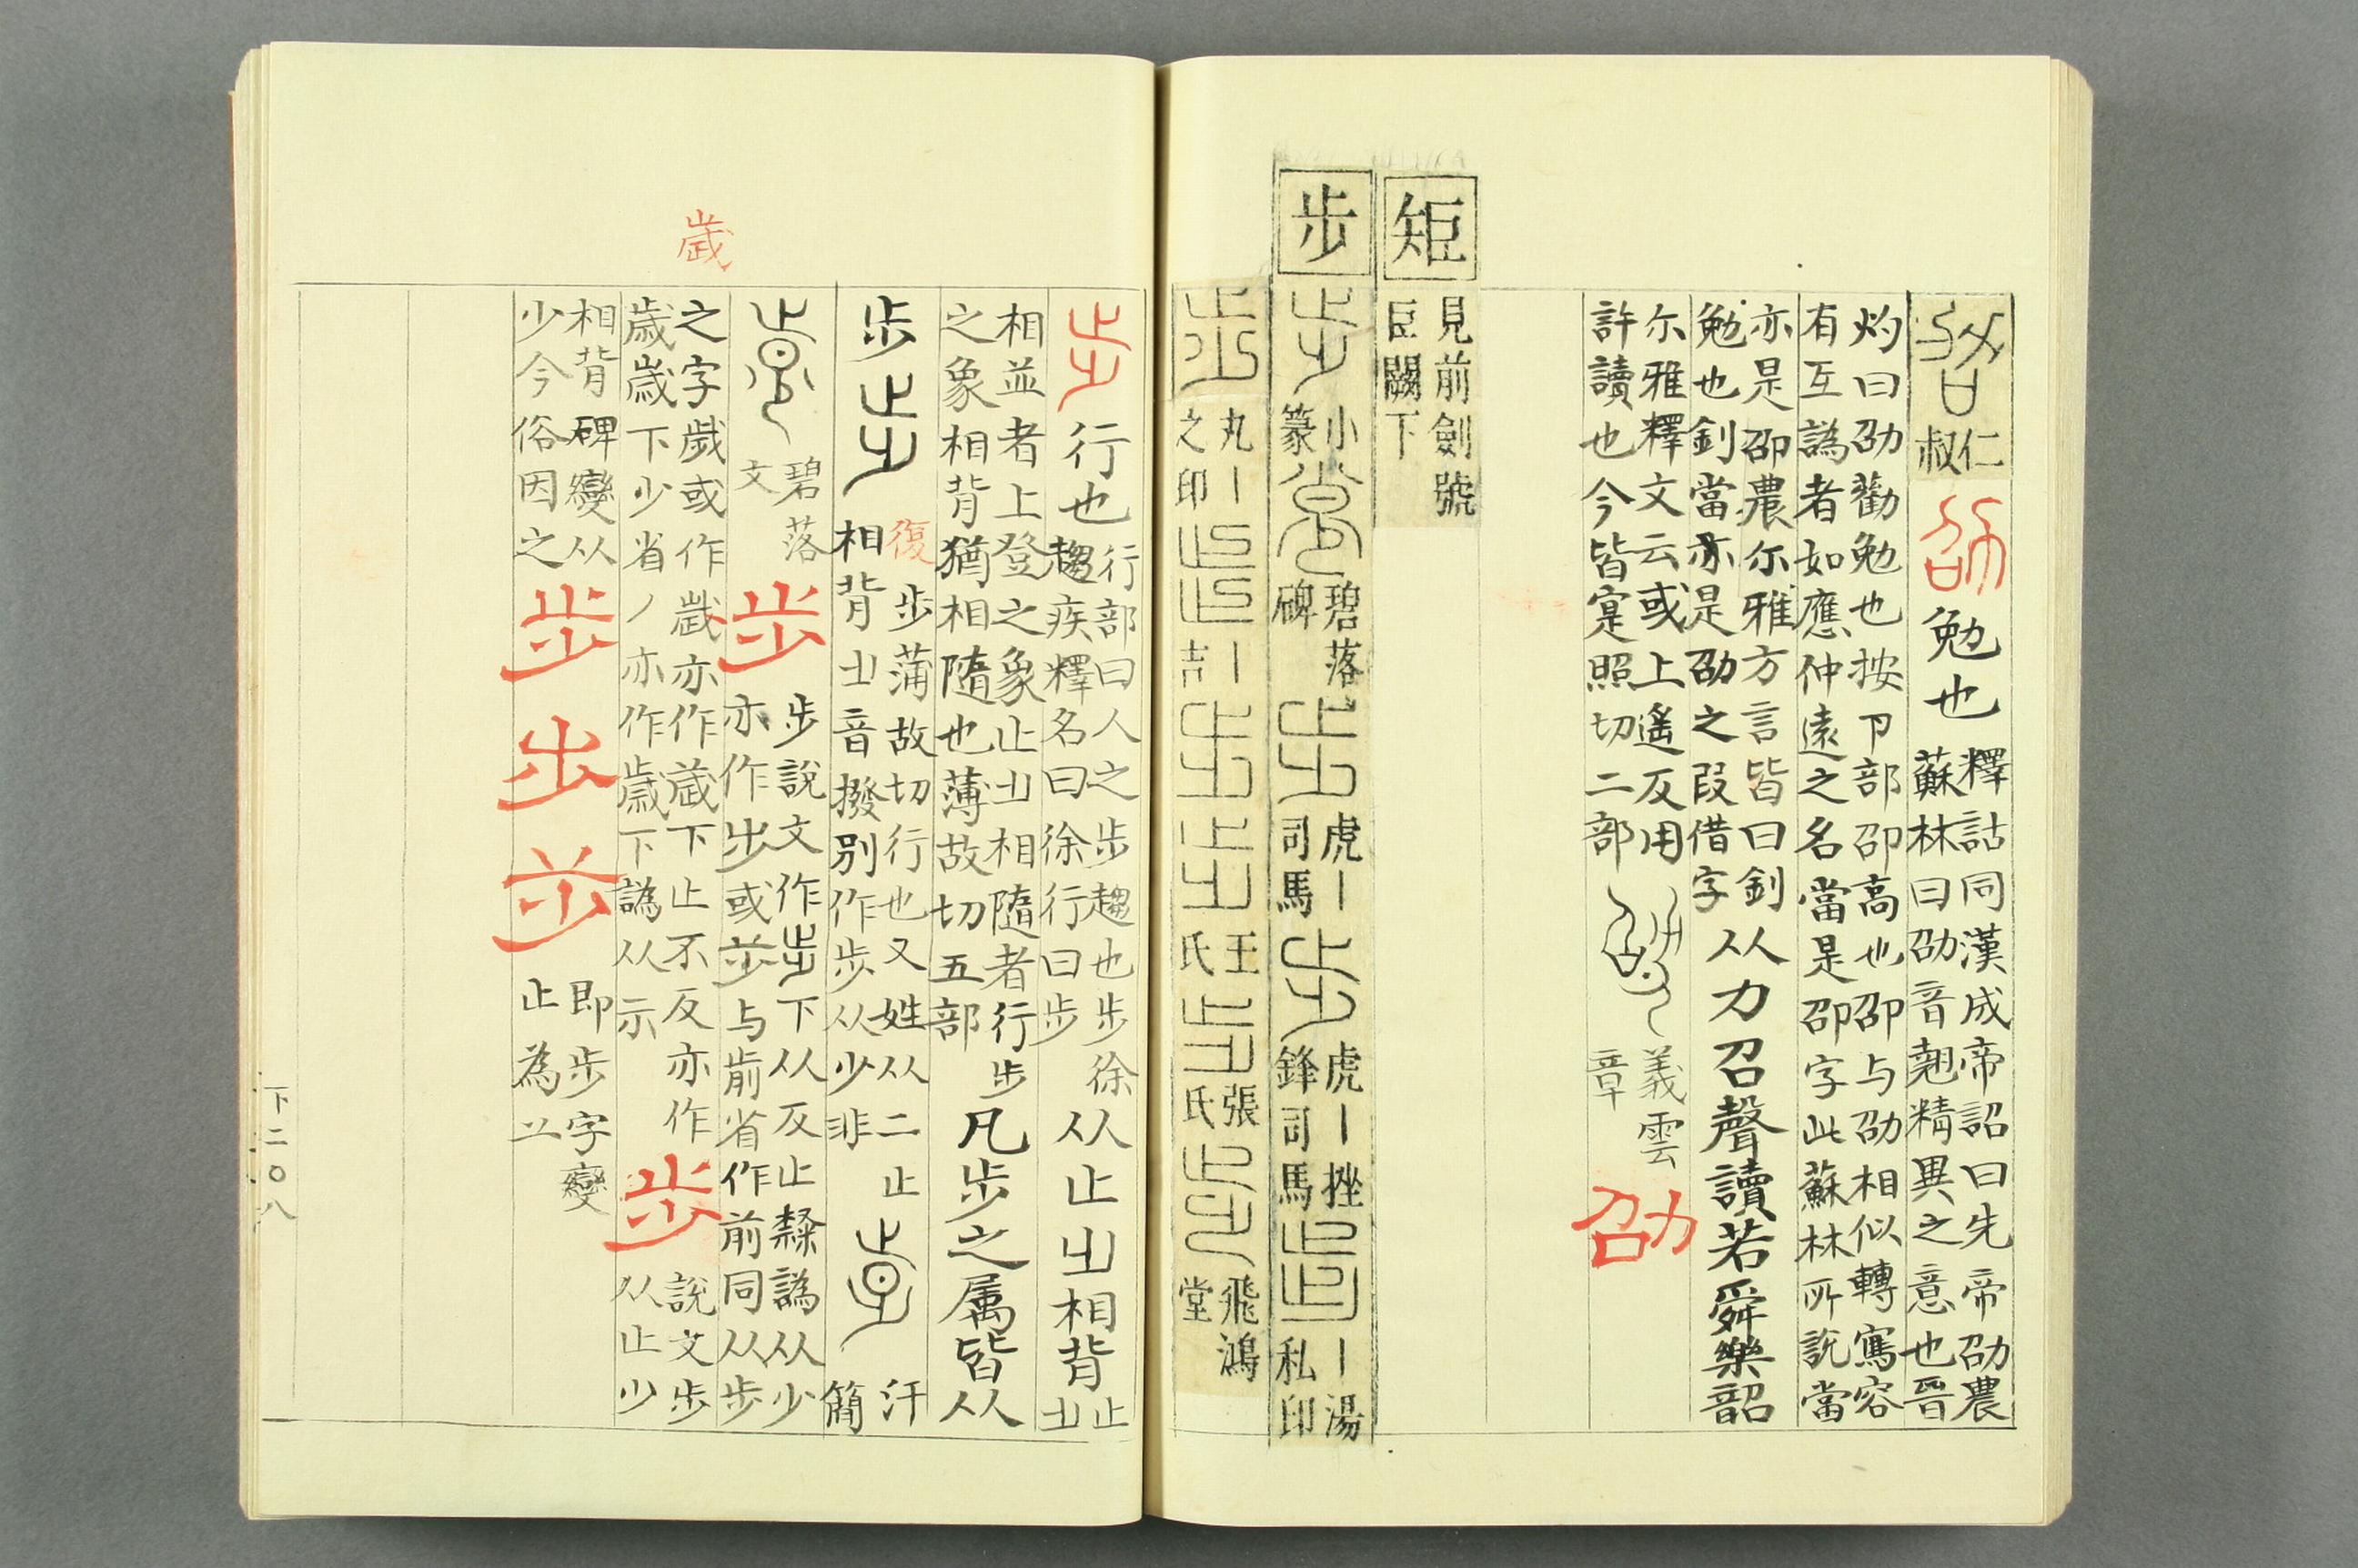 仁叔
劭
勉也
釋詁同漢成帝詔曰先帝劭農
蘇林曰劭音翹精異之意也晉
灼曰劭勸勉也按卩部卲高也卲与劭相似轉寫容
有互譌者如應仲遠之名當是卲字此蘇林所說當
亦是卲農尔雅方言皆曰釗
勉也釗當亦是劭之叚借字
从力召聲讀若舜樂韶
尔雅釋文云或上遙反用
許讀也今皆寔照切二部
義雲章
劭
矩
見前劍號
巨闕下
步
步
小篆
步
碧落碑
步
虎丨司馬
步
虎丨挫鋒司馬
步
丨湯私印
步
丸丨之印
步
丨吉
步
步
王氏
步
張氏
步
飛鴻堂
步
行也
行部曰人之步趨也步徐
趨疾釋名曰徐行曰步
从止𣥂相背
止𣥂
相並者上登之象止𣥂相隨者行步
之象相背猶相隨也薄故切五部
凡步之属皆从
步
步
復
步蒲故切行也又姓从二止
相背𣥂音撥別作歩从少非
步
汗簡
步
碧落文
歩
步說文作步下从反止隸譌从少
亦作步或歨与歬省作前同从步
歲
之字歲或作歳亦作嵗下止不反亦作
歳歳下少省丿亦作歳下譌从示
歩
說文步
从止少
相背碑變从
少今俗因之
歩
步
歨
即步字變
止為䒑
下二〇八